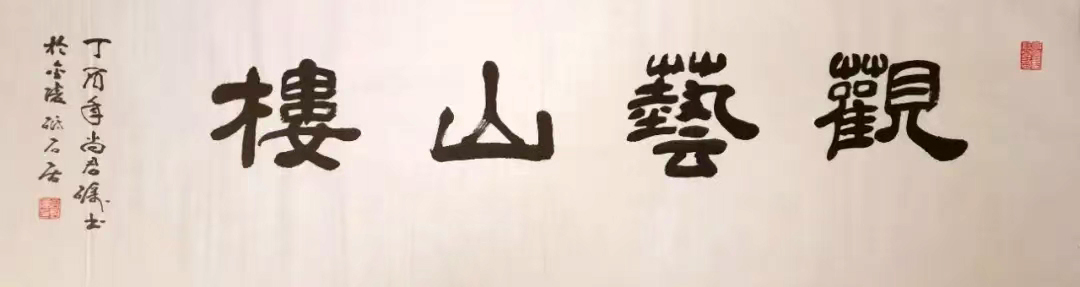 觀藝山樓
丁酉年尚君礪书
於金陵砺石居